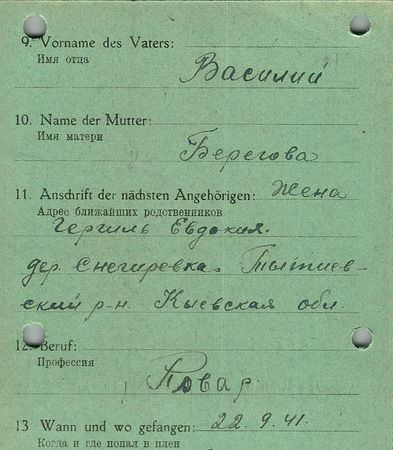 9. Vorname des Vaters:
Имя отца
Василий
10. Name der Mutter:
Имя матери
Берегова
11. Anschrift der nächsten Angehörigen: Жена
Адрес ближайших родственников
Гергиль Евдокия.
дер. Снегиревка Тытиев-
ский р-н. Кыевская обл.
12. Beruf:
Профессия
Повар
13 Wann und wo gefangen: 22. 9. 41.
Когда и где попал в плен